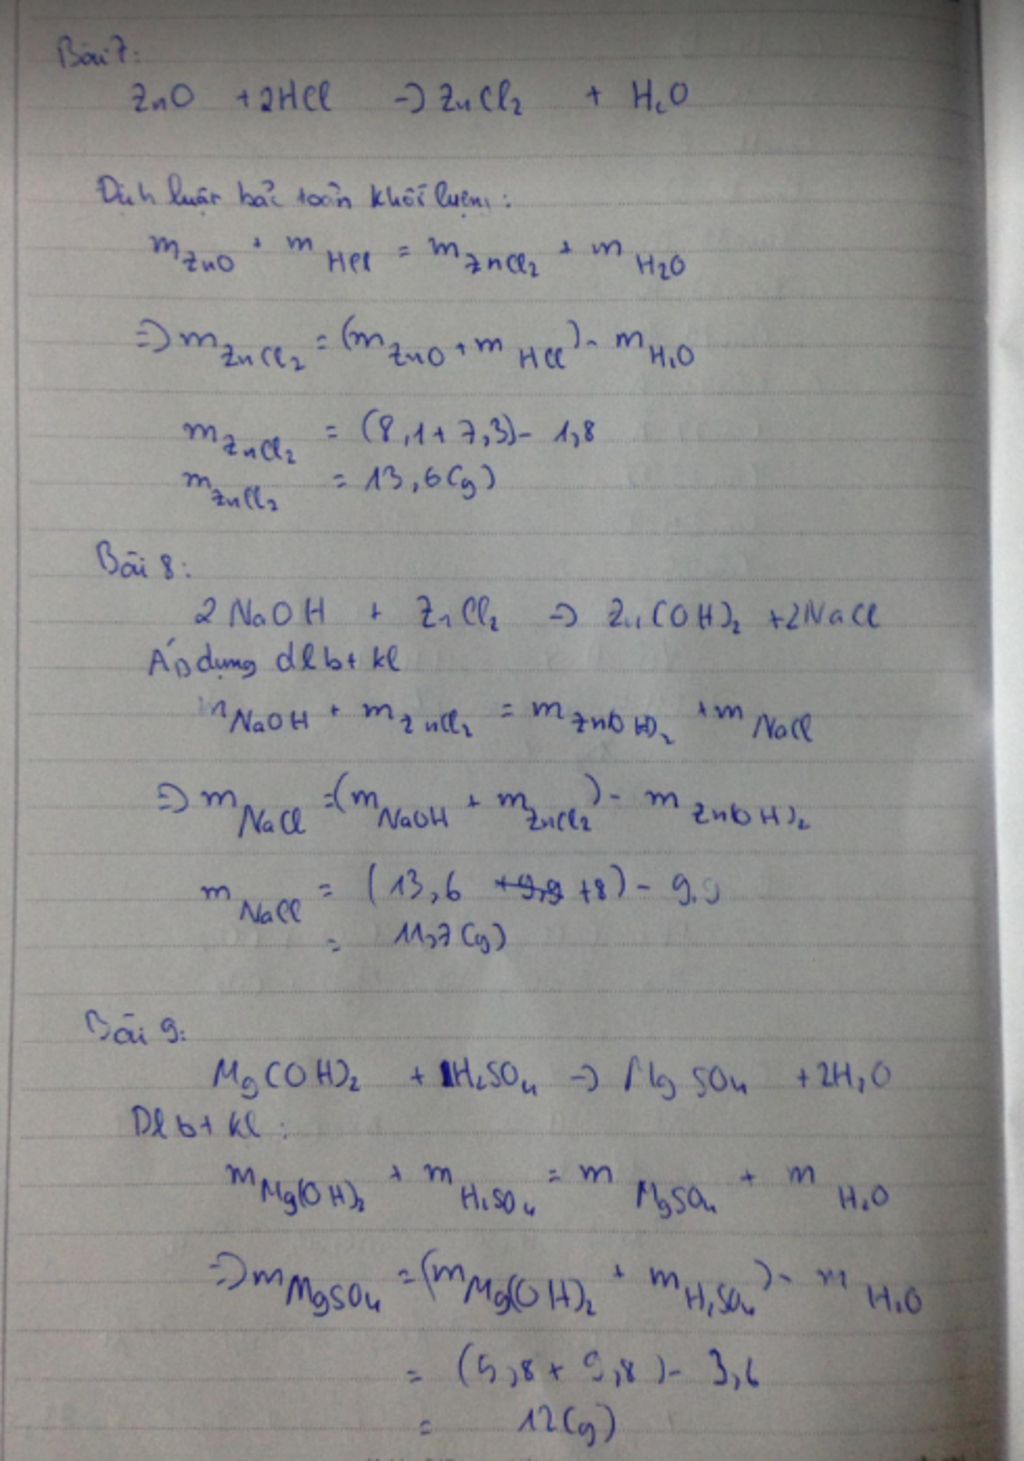 Bài 7:
ZnO + 2HCl → ZnCl₂ + H₂O
Định luật bảo toàn khối lượng:
m ZnO + m HCl = m ZnCl₂ + m H₂O
⇒ m ZnCl₂ = (m ZnO + m HCl) - m H₂O
m ZnCl₂ = (8,1 + 7,3) - 1,8
m ZnCl₂ = 13,6 (g)
Bài 8:
2 NaOH + ZnCl₂ → Zn(OH)₂ + 2NaCl
Áp dụng dlbt kl
m NaOH + m ZnCl₂ = m Zn(OH)₂ + m NaCl
⇒ m NaCl = (m NaOH + m ZnCl₂) - m Zn(OH)₂
m NaCl = (13,6 +9,9 +8) - 9,9
= 11,7 (g)
Bài 9:
Mg(OH)₂ + 1H₂SO₄ → MgSO₄ + 2H₂O
Dlbt kl:
m Mg(OH)₂ + m H₂SO₄ = m MgSO₄ + m H₂O
⇒ m MgSO₄ = (m Mg(OH)₂ + m H₂SO₄) - m H₂O
= (5,8 + 9,8) - 3,6
= 12 (g)